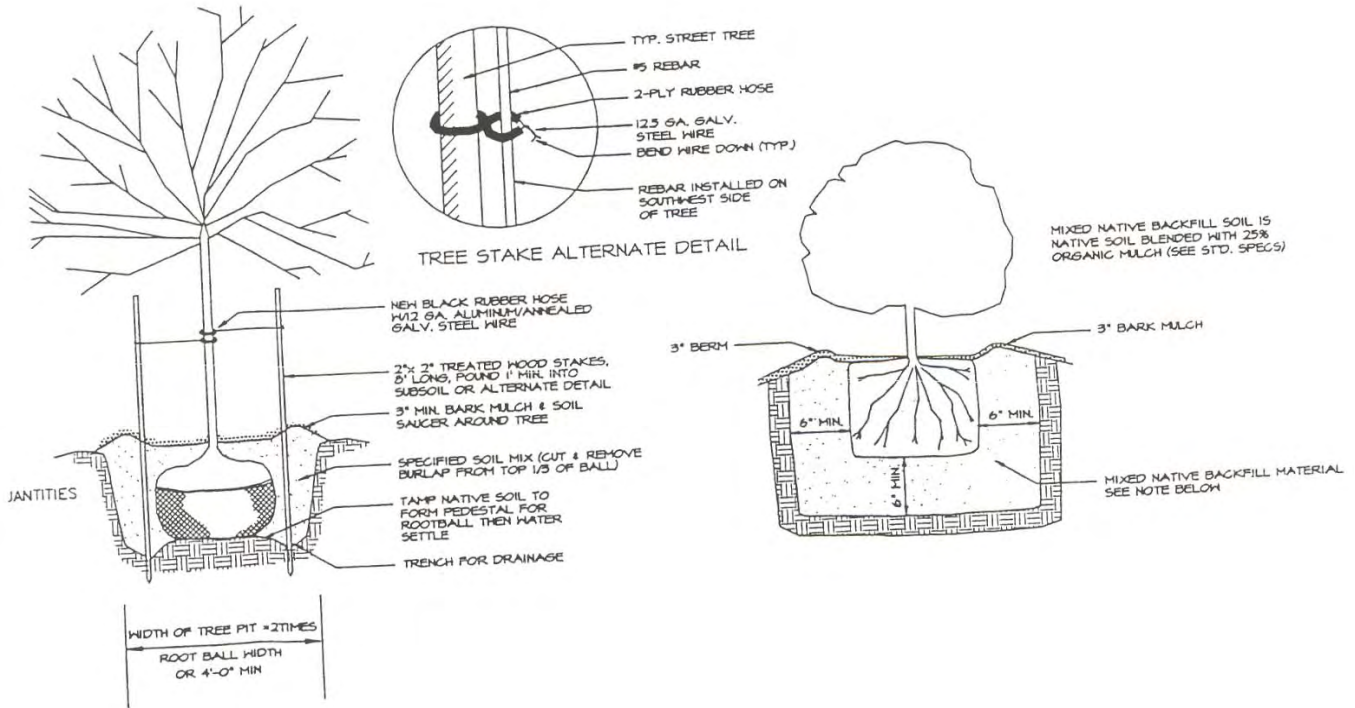 TYP. STREET TREE
#5 REBAR
2-PLY RUBBER HOSE
12.5 GA. GALV.
STEEL WIRE
BEND WIRE DOWN (TYP.)
REBAR INSTALLED ON
SOUTHWEST SIDE
OF TREE
TREE STAKE ALTERNATE DETAIL
NEW BLACK RUBBER HOSE
W/12 GA. ALUMINUM/ANNEALED
GALV. STEEL WIRE
2"x 2" TREATED WOOD STAKES,
8' LONG, POUND 1' MIN. INTO
SUBSOIL OR ALTERNATE DETAIL
3" MIN. BARK MULCH & SOIL
SAUCER AROUND TREE
SPECIFIED SOIL MIX (CUT & REMOVE
BURLAP FROM TOP 1/3 OF BALL)
TAMP NATIVE SOIL TO
FORM PEDESTAL FOR
ROOTBALL THEN WATER
SETTLE
TRENCH FOR DRAINAGE
JANTITIES
WIDTH OF TREE PIT =2TIMES
ROOT BALL WIDTH
OR 4'-0" MIN
MIXED NATIVE BACKFILL SOIL IS
NATIVE SOIL BLENDED WITH 25%
ORGANIC MULCH (SEE STD. SPECS)
3" BERM
3" BARK MULCH
6" MIN.
6" MIN.
6" MIN.
MIXED NATIVE BACKFILL MATERIAL
SEE NOTE BELOW